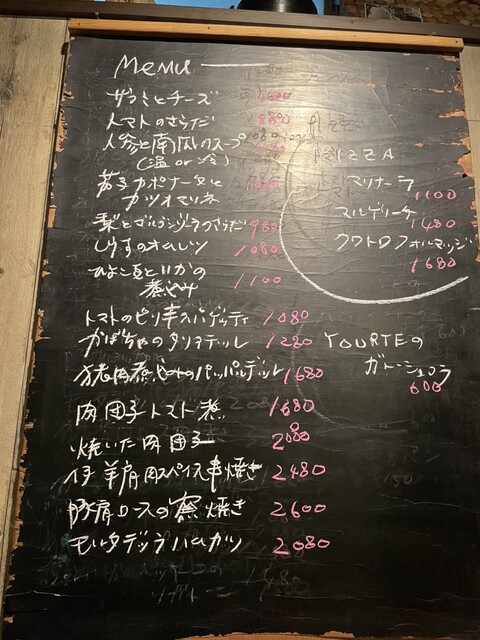 Menu
サラミとチーズ 1600
トマトのさらだ 880
人参と南瓜のスープ
(温 or 冷)
茄子カポナータと 1080
カツオマリネ
梨とゴルゴンゾーラのさらだ 980
しらすのオムレツ 1080
ひよこ豆といかの
煮込み 1100
トマトのピリ辛スパゲッティ 1080
かぼちゃのタリアテッレ 1280
猪肉煮込みのパッパルデッレ 1680
肉団子トマト煮 1680
焼いた肉団子 2080
仔羊肩肉スパイス串焼き 2480
豚肩ロースの窯焼き 2600
モルタデッラハムカツ 2080
PIZZA
マリナーラ
1100
マルゲリータ
1480
クワトロフォルマッジ
1680
YOURTEの
ガトーショコラ
600